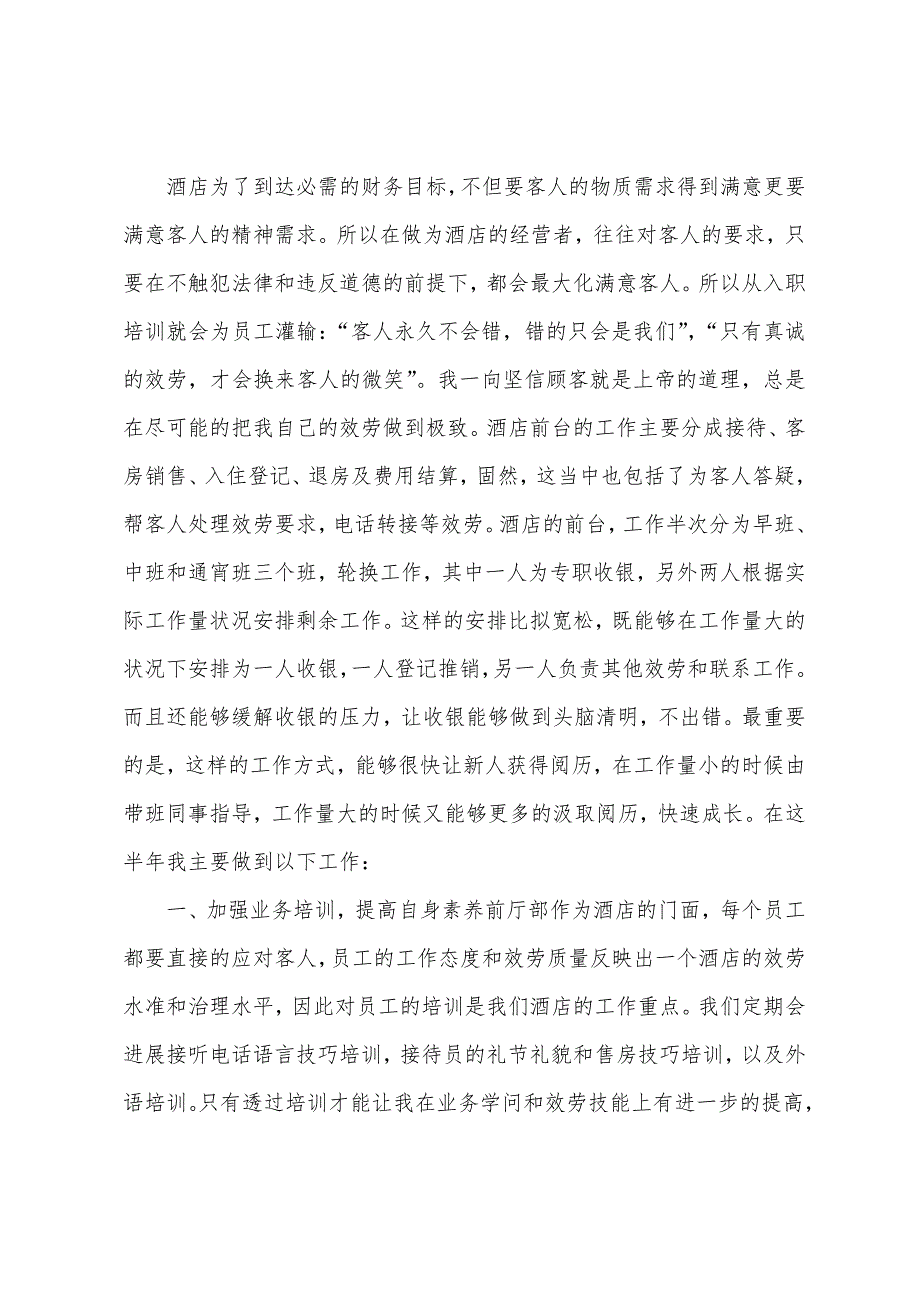 酒店为了到达必需的财务目标，不但要客人的物质需求得到满意更要
满意客人的精神需求。所以在做为酒店的经营者，往往对客人的要求，只
要在不触犯法律和违反道德的前提下，都会最大化满意客人。所以从入职
培训就会为员工灌输：“客人永久不会错，错的只会是我们”，“只有真诚
的效劳，才会换来客人的微笑”。我一向坚信顾客就是上帝的道理，总是
在尽可能的把我自己的效劳做到极致。酒店前台的工作主要分成接待、客
房销售、入住登记、退房及费用结算，固然，这当中也包括了为客人答疑，
帮客人处理效劳要求，电话转接等效劳。酒店的前台，工作半次分为早班、
中班和通宵班三个班，轮换工作，其中一人为专职收银，另外两人根据实
际工作量状况安排剩余工作。这样的安排比拟宽松，既能够在工作量大的
状况下安排为一人收银，一人登记推销，另一人负责其他效劳和联系工作。
而且还能够缓解收银的压力，让收银能够做到头脑清明，不出错。最重要
的是，这样的工作方式，能够很快让新人获得阅历，在工作量小的时候由
带班同事指导，工作量大的时候又能够更多的汲取阅历，快速成长。在这
半年我主要做到以下工作：
一、加强业务培训，提高自身素养前厅部作为酒店的门面，每个员工
都要直接的应对客人，员工的工作态度和效劳质量反映出一个酒店的效劳
水准和治理水平，因此对员工的培训是我们酒店的工作重点。我们定期会
进展接听电话语言技巧培训，接待员的礼节礼貌和售房技巧培训，以及外
语培训。只有透过培训才能让我在业务学问和效劳技能上有进一步的提高，